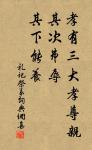 孝有三大孝尊親
其次弗辱
其下能養
礼記祭義詞典網集